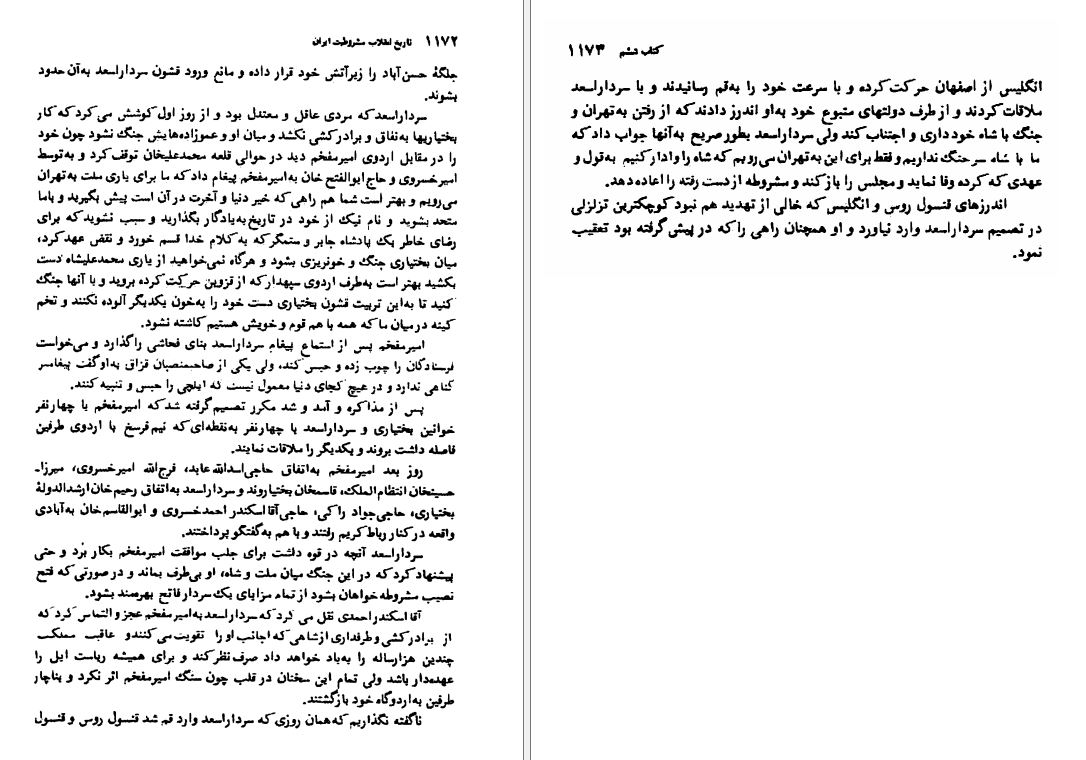 ۱۱۷۲ تاریخ انقلاب مشروطیت ایران
جلگهٔ حسن‌آباد را زیرآتش خود قرار داده و مانع ورود قشون سرداراسعد به‌آن حدود
بشوند.
سرداراسعدکه مردی عاقل و معتدل بود و از روز اول‌کوشش می‌کردکه‌کار
بختیاریها به‌نفاق و برادرکشی نکشد و میان او و عموزاده‌هایش جنگ نشود چون خود
را در مقابل اردوی امیرمفخم دید در حوالی قلعه محمدعلیخان توقف‌کرد و به‌توسط
امیرخسروی و حاج‌ابوالفتح خان به‌امیرمفخم پیغام دادکه ما برای یاری ملت به‌تهران
می‌رویم و بهتر است شما هم راهی‌که خیر دنیا و آخرت در آن است پیش بگیرید و باما
متحد بشوید و نام نیک از خود در تاریخ‌به‌یادگار بگذارید و سبب نشوید که برای
رضای خاطر یک پادشاه جابر و ستمگرکه به‌کلام خدا قسم خورد و نقض عهدکرد،
میان بختیاری جنگ و خونریزی بشود و هرگاه نمی‌خواهید از یاری محمدعلیشاه دست
بکشید بهتر است به‌طرف اردوی سپهدارکه از قزوین حرکت‌کرده بروید و با آنها جنگ
کنید تا به‌این تربیت قشون بختیاری دست خود را به‌خون یکدیگر آلوده نکنند و تخم
کینه درمیان ماکه همه باهم قوم و خویش هستیم کاشته نشود.
امیرمفخم پس از استماع پیغام سرداراسعد بنای فحاشی راگذارد و می‌خواست
فرستادگان را چوب زده و حبس‌کند، ولی یکی از صاحبمنصبان قزاق به‌اوگفت پیغامبر
گناهی ندارد و در هیچ کجای دنیا معمول نیست که ایلچی را حبس و تنبیه کنند.
پس از مذاکره و آمد و شد مکرر تصمیم‌گرفته شدکه امیرمفخم با چهارنفر
خوانین بختیاری و سرداراسعد با چهارنفر به‌نقطه‌ای‌که نیم‌فرسخ با اردوی طرفین
فاصله داشت بروند و یکدیگر را ملاقات نمایند.
روز بعد امیرمفخم به‌اتفاق حاجی‌اسدالله عابد، فرج‌الله امیرخسروی، میرزا-
حسینخان انتظام‌الملک، قاسمخان بختیاروند و سرداراسعد به‌اتفاق رحیم‌خان ارشدالدولهٔ
بختیاری، حاجی‌جواد راکی، حاجی‌آقا اسکندر احمدخسروی و ابوالقاسم‌خان به‌آبادی
واقعه درکنار رباط کریم رفتند و با هم به‌گفتگو پرداختند.
سرداراسعد آنچه در قوه داشت برای جلب موافقت امیرمفخم بکار بُرد و حتی
پیشنهادکردکه در این جنگ میان ملت و شاه، او بی‌طرف بماند و درصورتی‌که فتح
نصیب مشروطه‌خواهان بشود از تمام مزایای یک‌سردارفاتح بهره‌مند بشود.
آقا اسکندر احمدی نقل می کرد که سرداراسعد به‌امیرمفخم عجز و التماس کرد که
از برادرکشی و طرفداری ازشاهی که اجانب او را تقویت می‌کنندو عاقبت مملکت
چندین هزارساله را به‌باد خواهد داد صرف‌نظرکند و برای همیشه ریاست ایل را
عهده‌دار باشد ولی تمام این سخنان در قلب چون سنگ امیرمفخم اثر نکرد و بناچار
طرفین به‌اردوگاه خود بازگشتند.
ناگفته نگذاریم‌که‌همان روزی‌که سرداراسعد وارد قم شد قنسول روس و قنسول
کتاب ششم ۱۱۷۳
انگلیس از اصفهان حرکت‌کرده و با سرعت خود را به‌قم رسانیدند و با سرداراسعد
ملاقات‌کردند و از طرف دولتهای متبوع خود به‌او اندرز دادندکه از رفتن به‌تهران و
جنگ با شاه خودداری و اجتناب‌کند ولی سرداراسعد بطورصریح به‌آنها جواب دادکه
ما با شاه سرجنگ نداریم و فقط برای این به‌تهران می‌رویم که شاه را وادارکنیم به‌قول و
عهدی‌که کرده وفا نماید و مجلس را بازکند و مشروطه از دست رفته را اعاده دهد.
اندرزهای قنسول روس و انگلیس‌که خالی از تهدید هم نبود کوچکترین تزلزلی
در تصمیم سرداراسعد وارد نیاورد و او همچنان راهی راکه در پیش‌گرفته بود تعقیب
نمود.